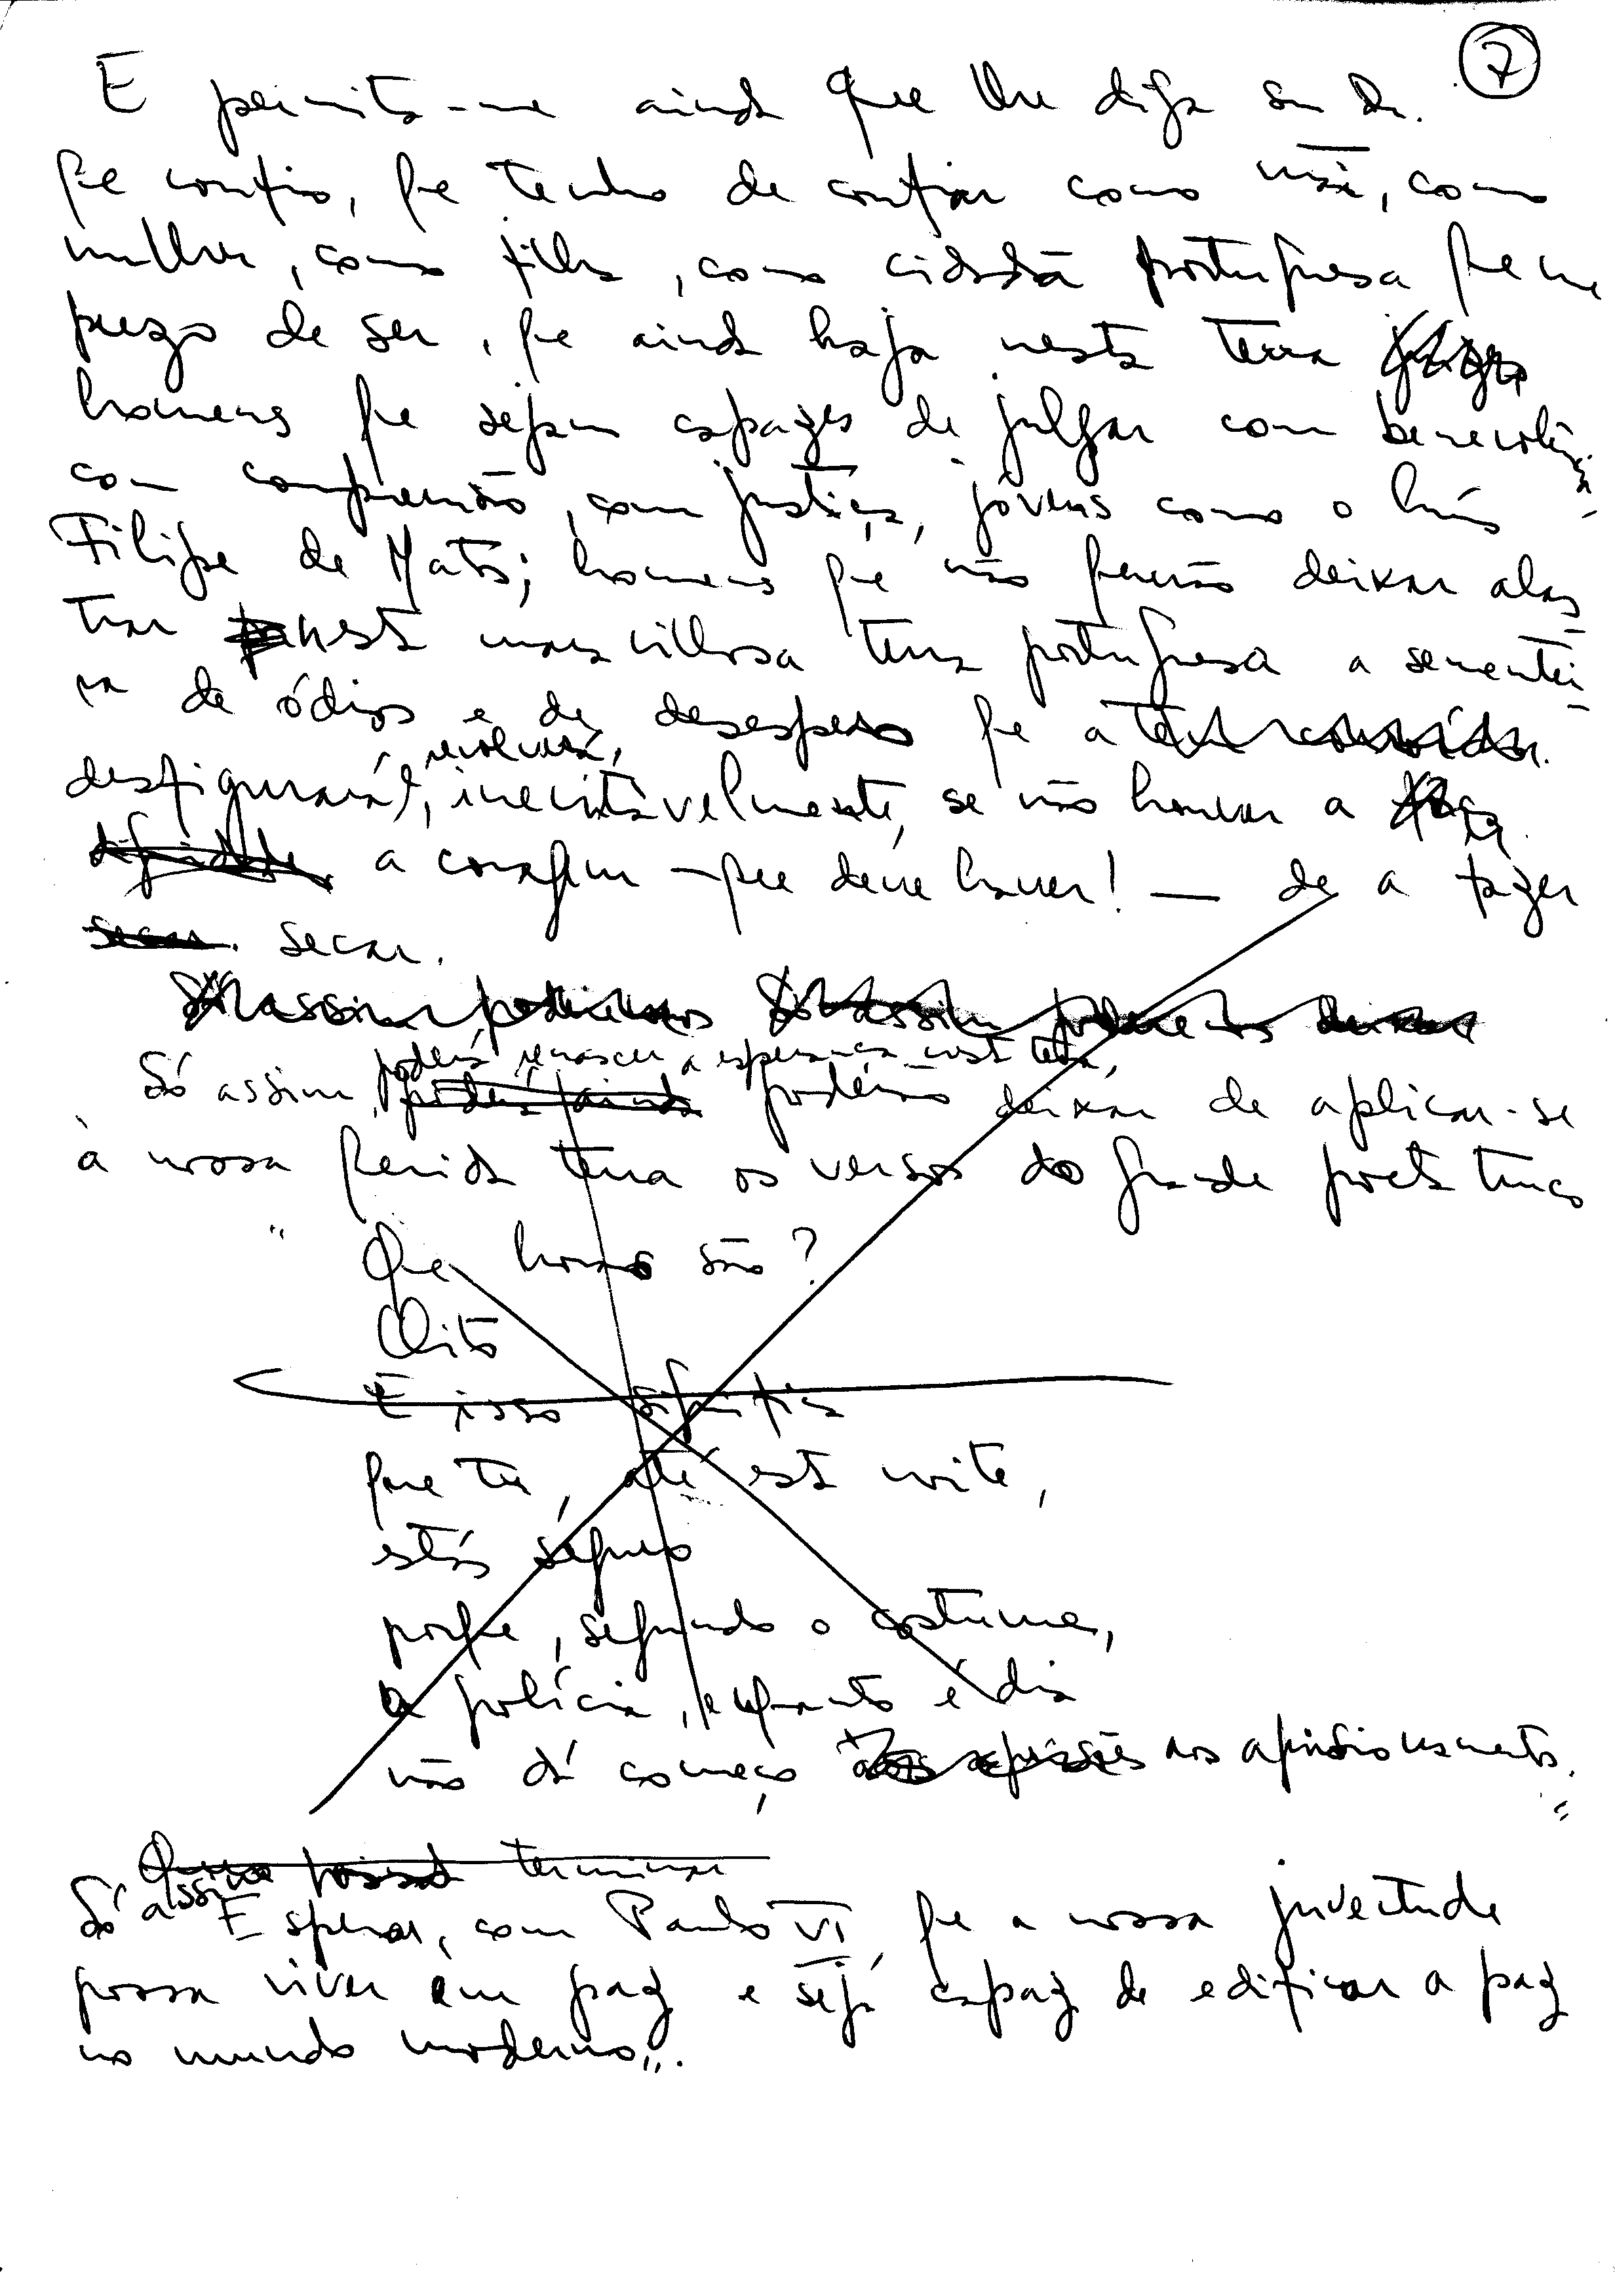 7
E permita-me ainda que lhe diga sr. Dr.
que confio, que tenho de confiar como mãe, como
mulher, como filha, como cidadã portuguesa que me
prezo de ser, que ainda haja nesta terra
homens que sejam capazes de julgar com benevolência
com compreensão, com justiça, jovens como o Luís
Filipe de Matos; homens que não quererão deixar alas
trar nesta maravilhosa terra portuguesa a sementei
ra de ódios e de desespero que a
revolverá,
desfigurará, inevitàvelmente, se não houver a força
dignidade a coragem — que deve haver! — de a fazer
secar. secar.
Só assim poderemos Só assim poderemos deixar
poderá renascer a esperança nesta terra,
Só assim, poderá ainda poderão deixar de aplicar-se
à nossa querida terra os versos do grande poeta turco
" Que horas são?
Oito
E isso significa
que tu, até esta noite,
estás seguro
porque, segundo o costume,
a polícia, enquanto é dia
não dá começo aos aprisionamentos.
"
terminar
Só assim Esperar, com Paulo VI, que a nossa juventude
possa viver em paz e seja capaz de edificar a paz
no mundo moderno".